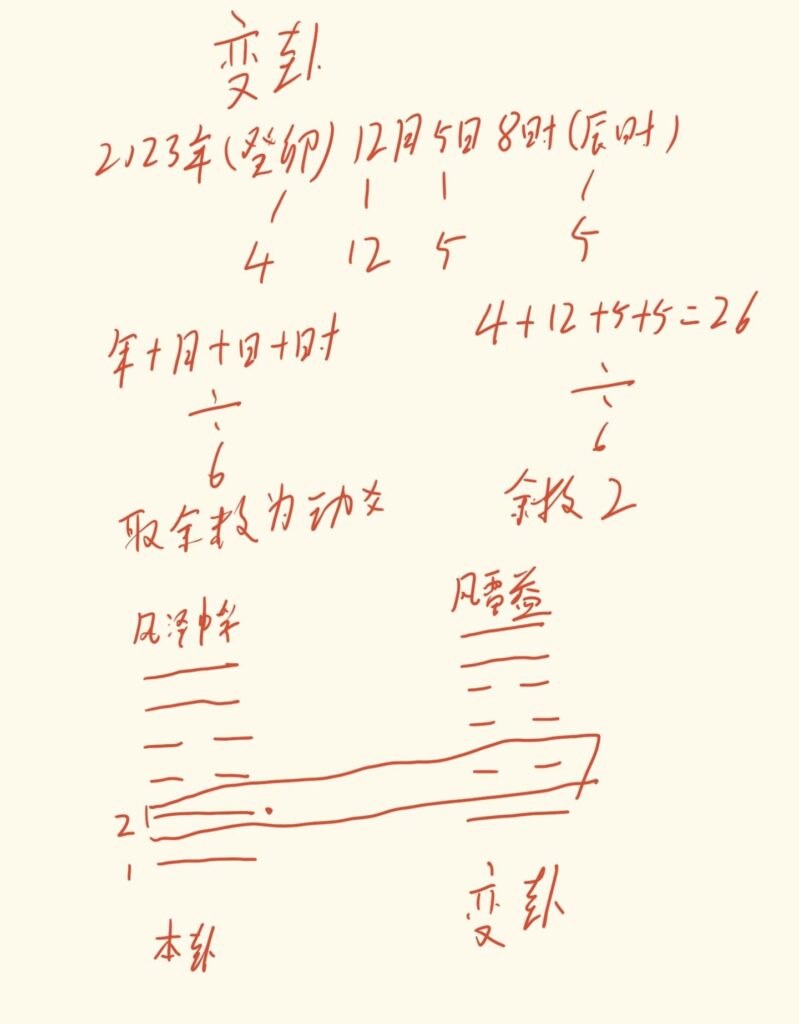 变卦
2023年(癸卯) 12月5日 8时(辰时)
4 12 5 5
年+月+日+时
÷
6
取余数为动爻
4+12+5+5=26
÷
6
余数2
风泽中孚
风雷益
2
1
本卦
变卦